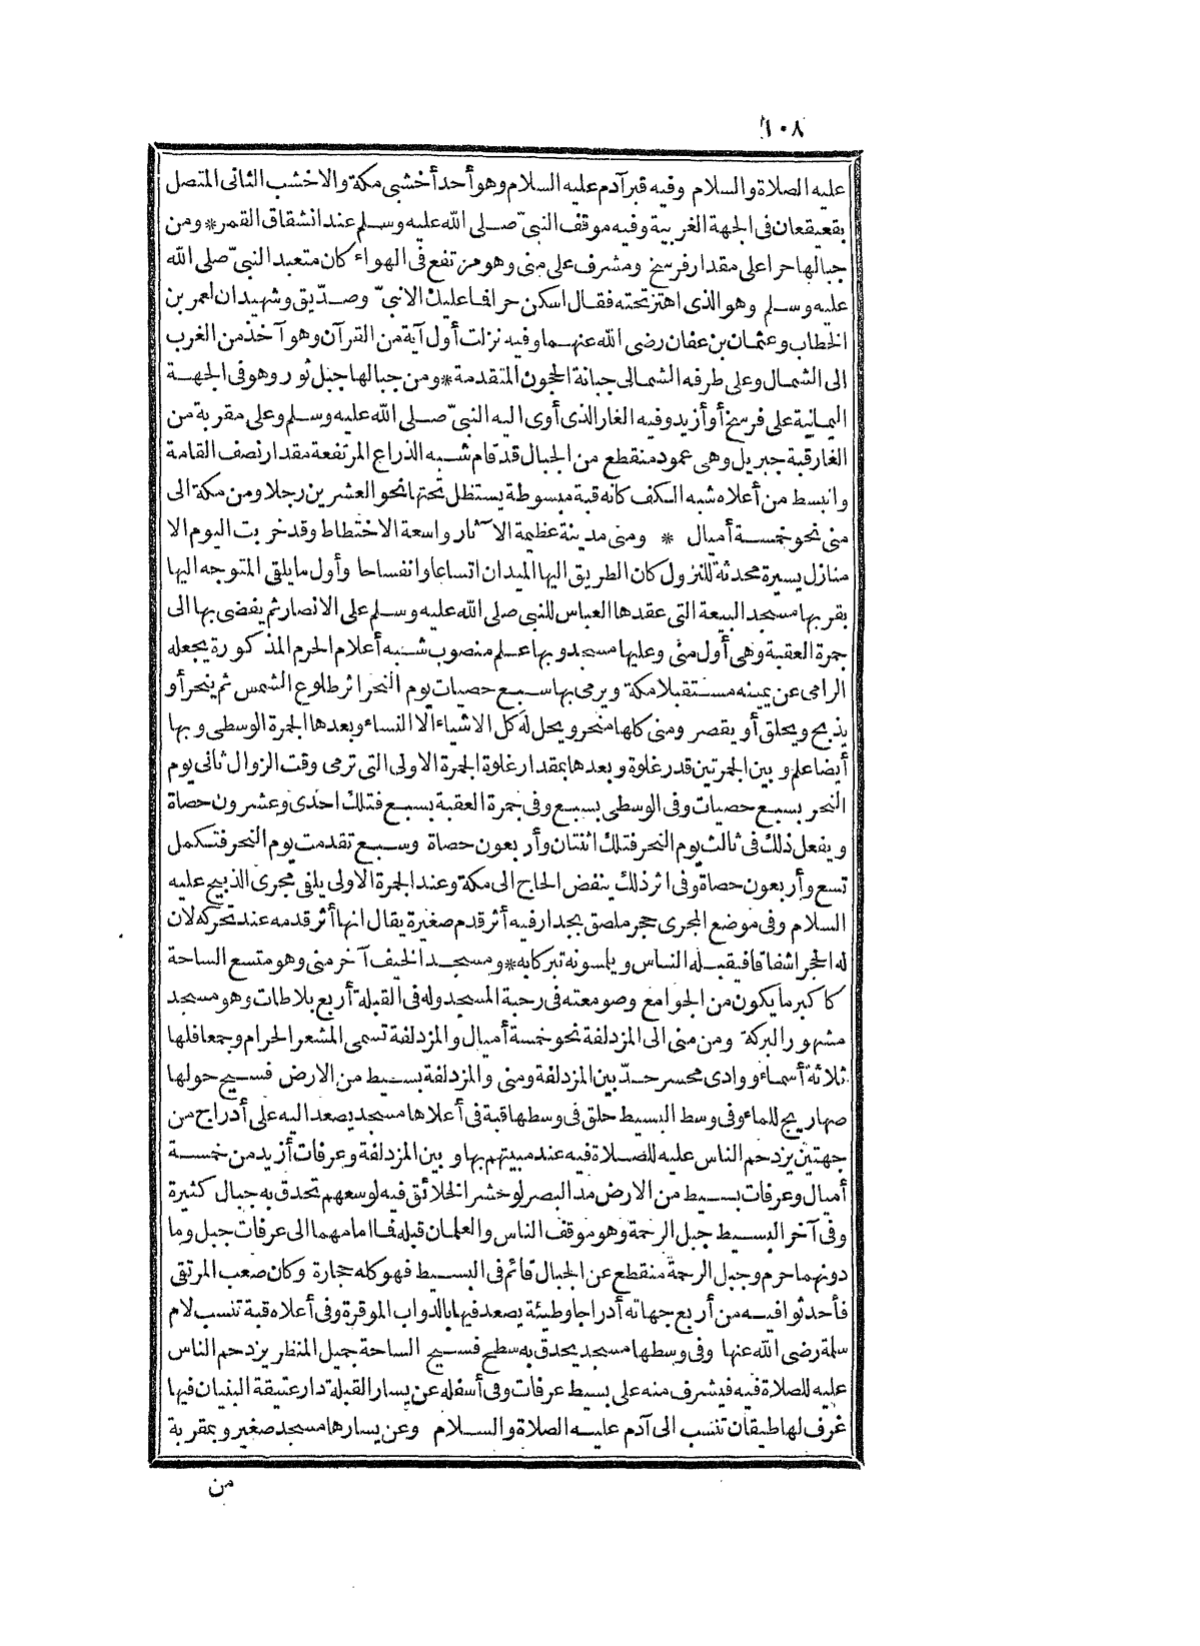 ١٠٨
عليه الصلاة والسلام وفيه قبر آدم عليه السلام وهو أحد أخشبي مكة والاخشب الثانى المتصل
بقعيقعان فى الجهة الغربية وفيه موقف النبىّ صلى الله عليه وسلم عند انشقاق القمر * ومن
جبالها حرا على مقدار فرسخ ومشرف على منى وهو مرتفع فى الهواء كان متعبد النبىّ صلى الله
عليه وسلم وهو الذى اهتز تحته فقال اسكن حرا فما عليك الا نبىّ وصدّيق وشهيدان لعمر بن
الخطاب وعثمان بن عفان رضى الله عنهما وفيه نزلت أول آية من القرآن وهو آخذ من الغرب
الى الشمال وعلى طرفه الشمالى جبانة الحجون المتقدمة * ومن جبالها جبل ثور وهو فى الجهة
اليمانية على فرسخ أو أزيد وفيه الغار الذى أوى اليه النبىّ صلى الله عليه وسلم وعلى مقربة من
الغار قبة جبريل وهى عمود منقطع من الجبال قد قام شبه الذراع المرتفعة مقدار نصف القامة
وانبسط من أعلاه شبه الكف كانه قبة مبسوطة يستظل تحتها نحو العشرين رجلا ومن مكة الى
منى نحو خمسة أميال * ومنى مدينة عظيمة الآثار واسعة الاختطاط وقد خربت اليوم الا
منازل يسيرة محدثة للنزول كان الطريق اليها الميدان اتساعا وانفساحا وأول ما يلقى المتوجه اليها
بقربها مسجد البيعة التى عقدها العباس للنبى صلى الله عليه وسلم على الانصار ثم يفضى بها الى
جمرة العقبة وهى أول منى وعليها مسجد وبها علم منصوب شبه أعلام الحرم المذكورة يجعله
الرامى عن يمينه مستقبلا مكة ويرمى بها سبع حصيات يوم النحر اثر طلوع الشمس ثم ينحر أو
يذبح ويحلق أو يقصر ومنى كلها منحر ويحل له كل الاشياء الا النساء وبعدها الجمرة الوسطى وبها
أيضا علم وبين الجمرتين قدر غلوة وبعدها بمقدار غلوة الجمرة الاولى التى ترمى وقت الزوال ثانى يوم
النحر بسبع حصيات وفى الوسطى بسبع وفى جمرة العقبة بسبع فتلك احدى وعشرون حصاة
ويفعل ذلك فى ثالث يوم النحر فتلك اثنتان وأربعون حصاة وسبع تقدمت يوم النحر فتكمل
تسع وأربعون حصاة وفى اثر ذلك ينفض الحاج الى مكة وعند الجمرة الاولى يلفى مجرى الذبيح عليه
السلام وفى موضع المجرى حجر ملصق بجدار فيه أثر قدم صغيرة يقال انها أثر قدمه عند تحركه لان
له الحجر اشفاقا فيقبله الناس ويلمسونه تبركا به * ومسجد الخيف آخر منى وهو متسع الساحة
كاكبر ما يكون من الجوامع وصومعته فى رحبة المسجد وله فى القبلة أربع بلاطات وهو مسجد
مشهور البركة ومن منى الى المزدلفة نحو خمسة أميال والمزدلفة تسمى المشعر الحرام وجمعا فلها
ثلاثة أسماء ووادى محسر حدّ بين المزدلفة ومنى والمزدلفة بسيط من الارض فسيح حولها
صهاريج للماء وفى وسط البسيط حلق فى وسطها قبة فى أعلاها مسجد يصعد اليه على أدراج من
جهتين يزدحم الناس عليه للصلاة فيه عند مبيتهم بها وبين المزدلفة وعرفات أزيد من خمسة
أميال وعرفات بسيط من الارض مد البصر لو حشر الخلائق فيه لوسعهم تحدق به جبال كثيرة
وفى آخر البسيط جبل الرحمة وهو موقف الناس والعلمان قبله فما امامهما الى عرفات جبل وما
دونهما حرم وجبل الرحمة منقطع عن الجبال قائم فى البسيط فهو كله حجارة وكان صعب المرتقى
فأحدثوا فيه من أربع جهاته أدراجا وطيئة يصعد فيها بالدواب الموقرة وفى أعلاه قبة تنسب لام
سلمة رضى الله عنها وفى وسطها مسجد يحدق به سطح فسيح الساحة جميل المنظر يزدحم الناس
عليه للصلاة فيه فيشرف منه على بسيط عرفات وفى أسفله عن يسار القبلة دار عتيقة البنيان فيها
غرف لها طيقان تنسب الى آدم عليه الصلاة والسلام وعن يسارها مسجد صغير وبمقربة
من